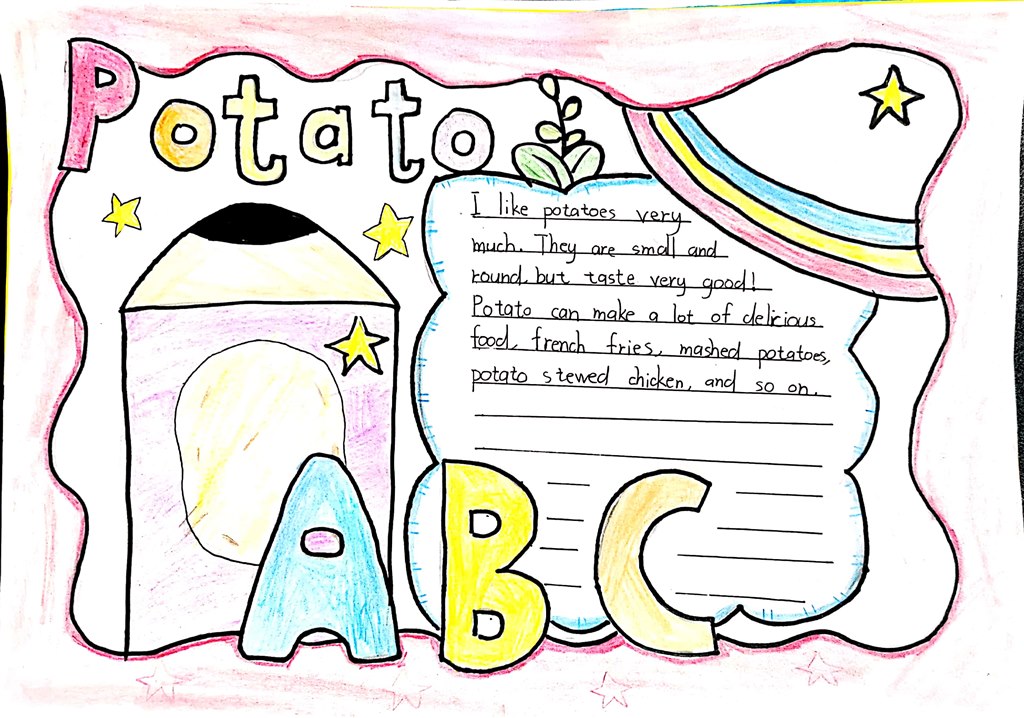 Potato
I like potatoes very
much. They are small and
round, but taste very good!
Potato can make a lot of delicious
food, french fries, mashed potatoes,
potato stewed chicken, and so on.
ABC